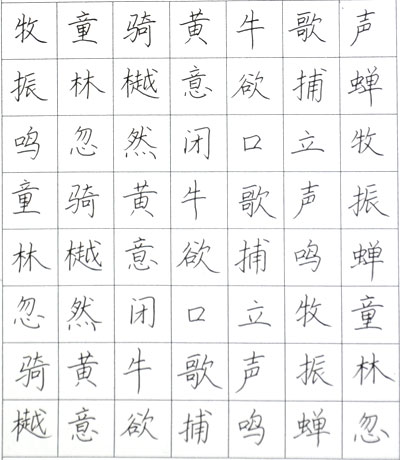 牧童骑黄牛歌声
振林樾意欲捕蝉
鸣忽然闭口立牧
童骑黄牛歌声振
林樾意欲捕鸣蝉
忽然闭口立牧童
骑黄牛歌声振林
樾意欲捕鸣蝉忽